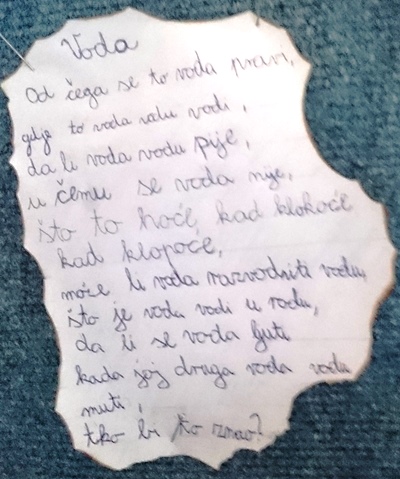 Voda
Od čega se to voda pravi,
gdje to voda vodu vodi,
da li voda vodu pije,
u čemu se voda mije,
što to hoće, kad klokoće
kad klopoće,
može li voda razvodniti vodu,
što je voda vodi u rodu,
da li se voda ljuti
kada joj druga voda vodu
muti,
tko bi to znao?